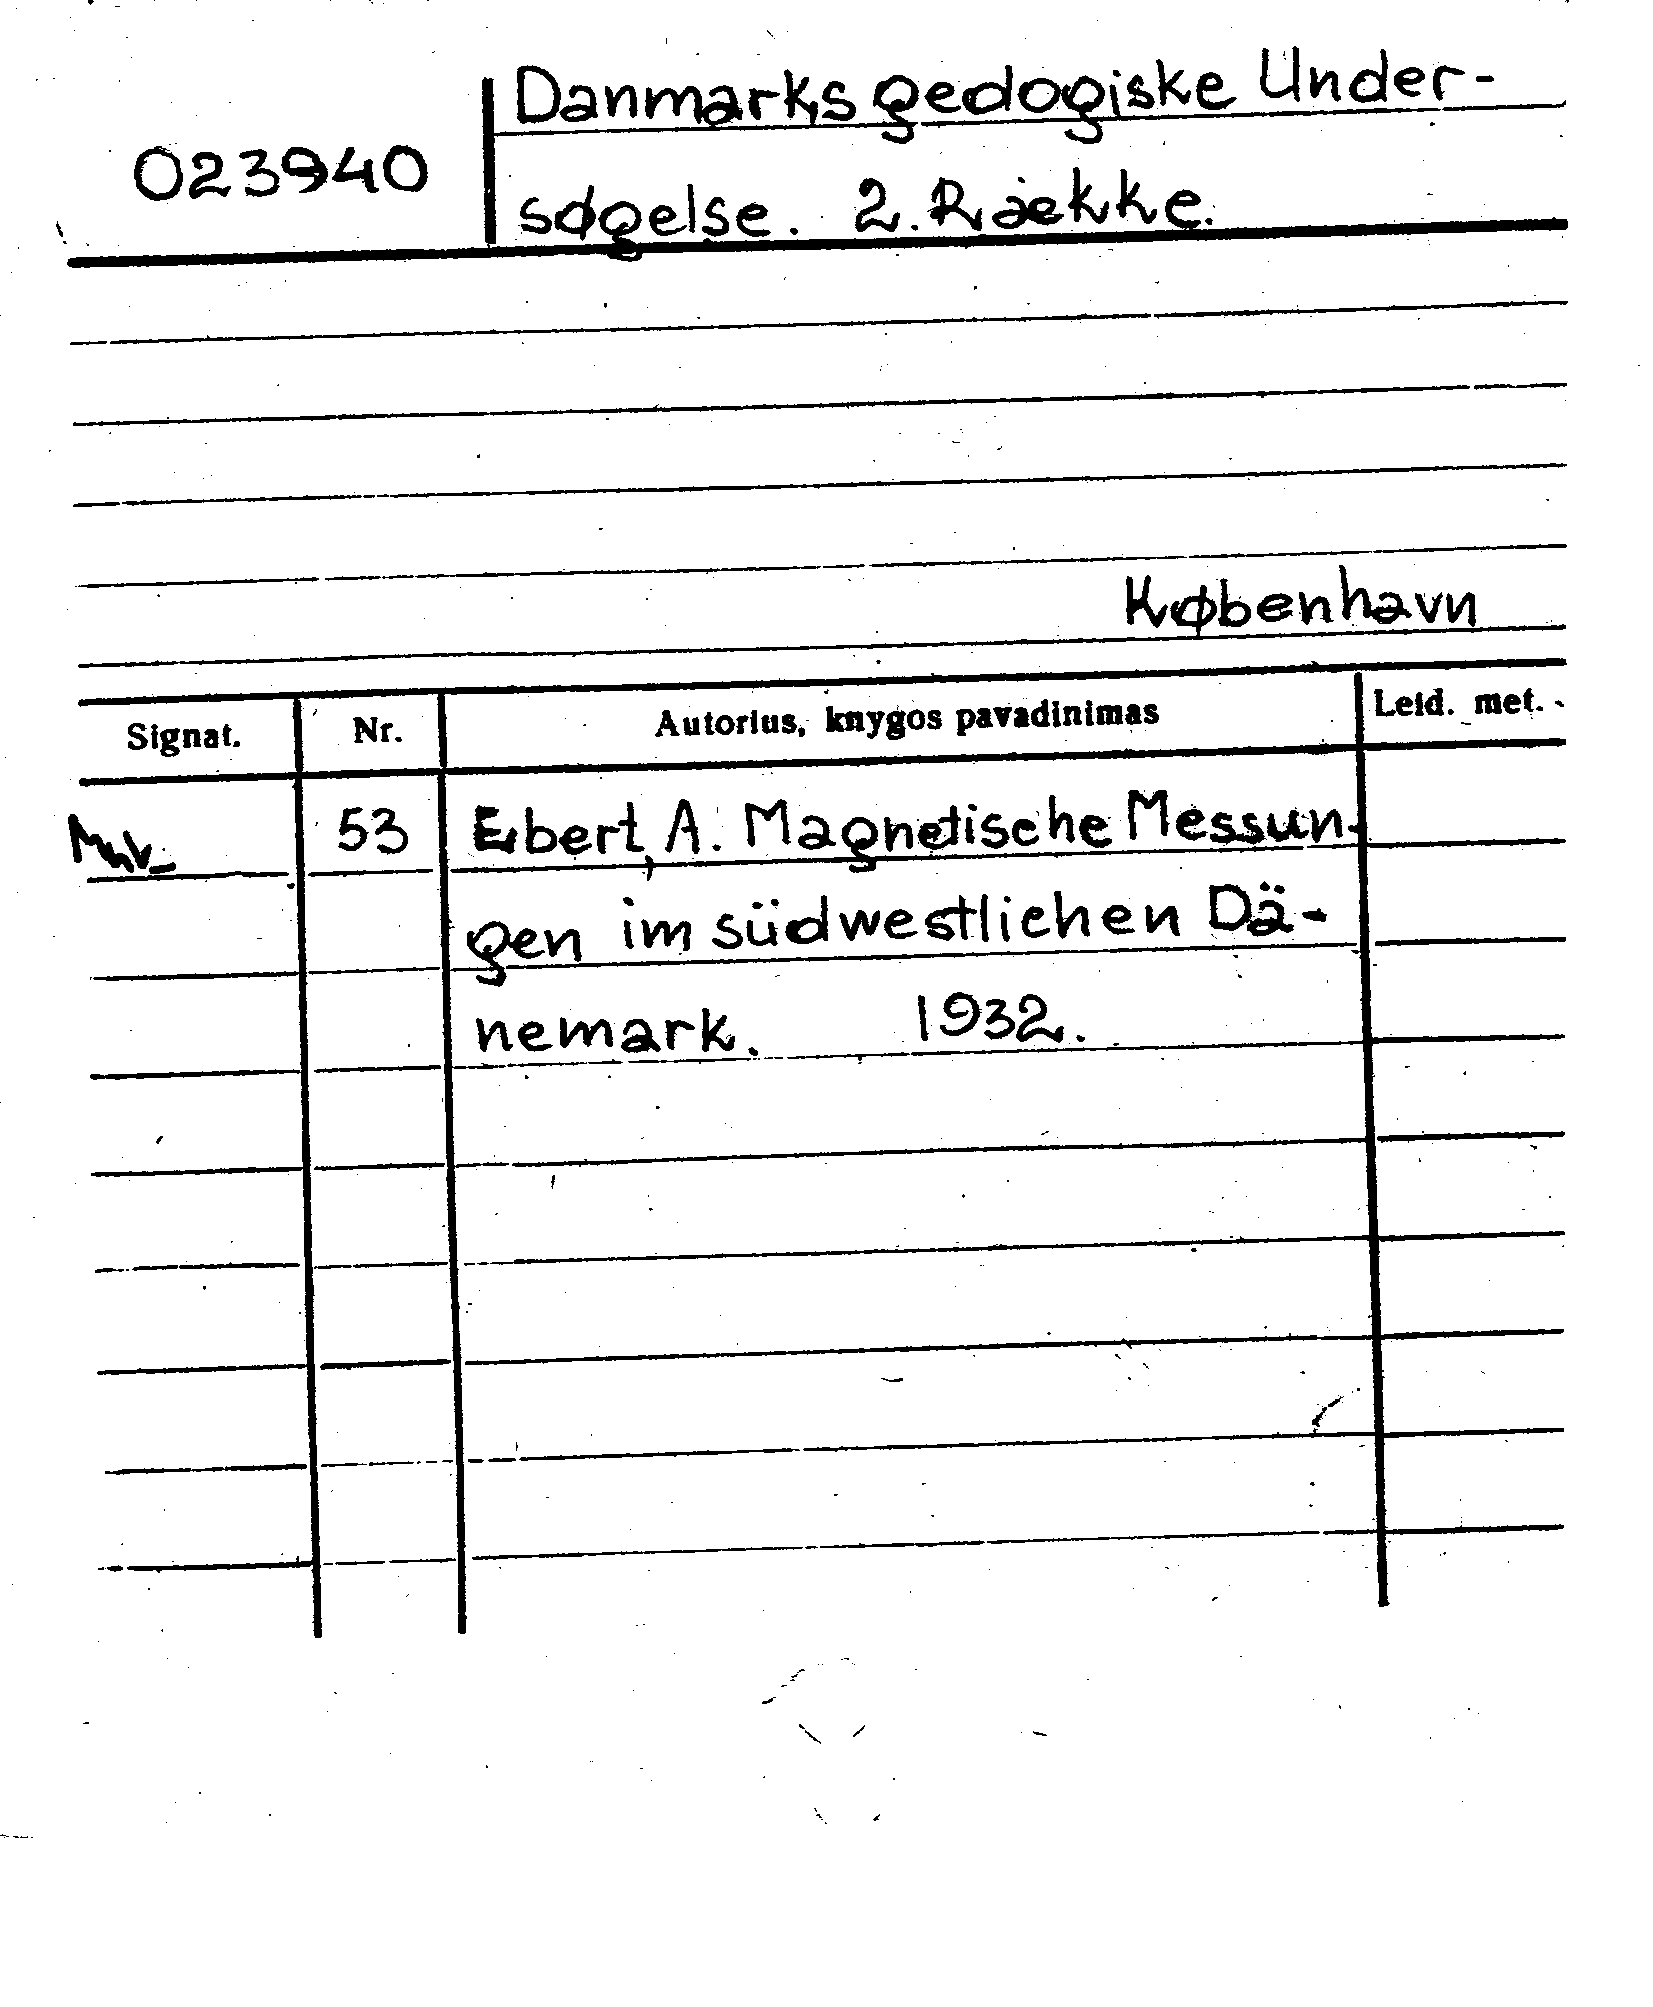 Danmarks geologiske Under-
023940
søgelse. 2. Række.
København
Signat. Nr. Autorius, knygos pavadinimas Leid. met.
53 Ebert, A. Magnetische Messun-
gen im südwestlichen Dä-
nemark. 1932.